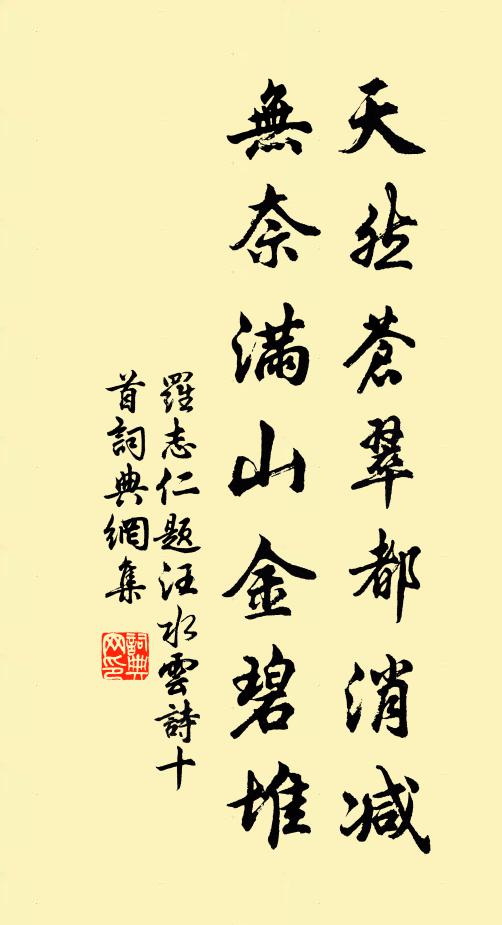 天然蒼翠都消減
無奈滿山金碧堆
羅志仁題汪水雲詩十
首詞典網集
詞典网印